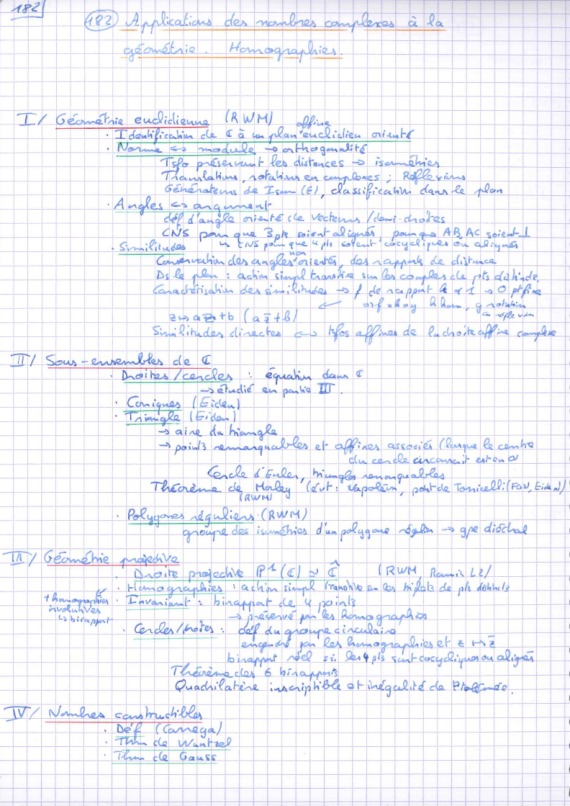 182
(182) Applications des nombres complexes à la
géométrie. Homographies.
I/ Géométrie euclidienne (RWM)
affine
· Identification de ℂ à un plan euclidien orienté
· Norme ↔ module → orthogonalité
Tsfo préservant les distances → isométries
Translations, rotations en complexes ; Réflexions
Générateurs de Isom(E), classification dans le plan
· Angles ↔ argument
déf d'angle orienté de vecteurs / demi-droites
CNS pour que 3 pts soient alignés, pour que AB, AC soient ⊥
↳ CNS pour que 4 pts soient cocycliques ou alignés
· Similitudes
Conservation des angles non orientés, des rapports de distance
Ds le plan : action simpl transitive sur les couples de pts distincts
Caractérisation des similitudes → f de rapport k ≠ 1 → 0 pt fixe
z ↦ az+b (az̄+b)
Similitudes directes ↔ tsfos affines de la droite affine complexe
II/ Sous-ensembles de ℂ
· Droites/cercles : équation dans ℂ
→ étudié en partie III.
· Coniques (Eiden)
· Triangle (Eiden)
→ aire du triangle
→ points remarquables et affixes associés (lorsque le centre
du cercle circonscrit est en 0)
Cercle d'Euler, triangles remarquables
Théorème de Morley (évt : Napoléon, point de Torricelli : (FGN, Eiden))
(RWM)
· Polygones réguliers (RWM)
groupe des isométries d'un polygone régulier → gpe diédral
III/ Géométrie projective
· Droite projective P¹(ℂ) ≃ ℂ̂ (RWM Ramis L2)
· Homographies : action simpl transitive sur les triplets de pts distincts
+ homographies
involutives
↳ birapport
· Invariant : birapport de 4 points
→ préservé par les homographies
· Cercles/droites : déf du groupe circulaire
engendré par les homographies et z ↦ z̄
birapport réel ssi les 4 pts sont cocycliques ou alignés
Théorème des 6 birapports
Quadrilatère inscriptible et inégalité de Ptolémée.
IV/ Nombres constructibles
· Déf (Carrega)
· Thm de Wantzel
· Thm de Gauss